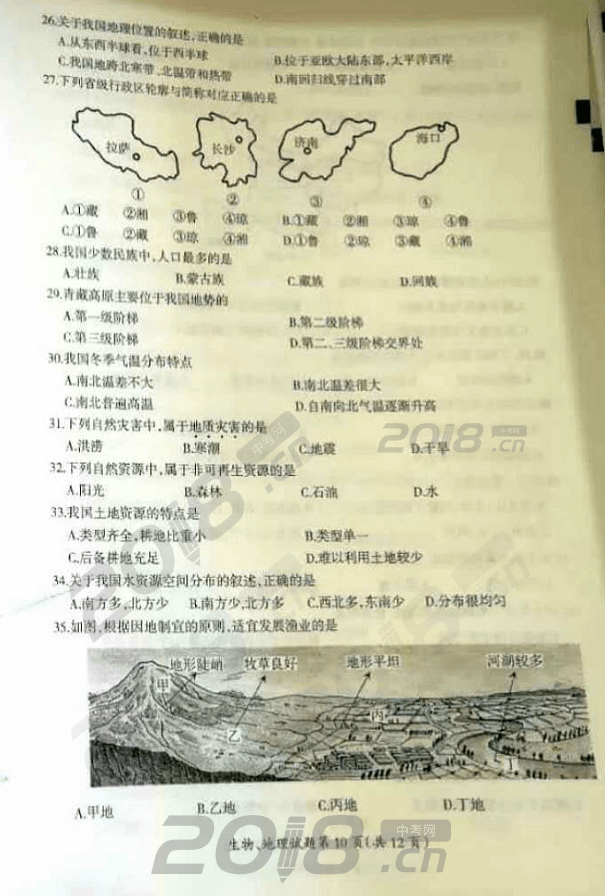 26.关于我国地理位置的叙述,正确的是
A.从东西半球看,位于西半球 B.位于亚欧大陆东部,太平洋西岸
C.我国地跨北寒带、北温带和热带 D.南回归线穿过南部
27.下列省级行政区轮廓与简称对应正确的是
拉萨 长沙 济南 海口
① ② ③ ④
A.①藏 ②湘 ③鲁 ④琼 B.①藏 ②湘 ③琼 ④鲁
C.①鲁 ②藏 ③琼 ④湘 D.①鲁 ②琼 ③藏 ④湘
28.我国少数民族中,人口最多的是
A.壮族 B.蒙古族 C.藏族 D.回族
29.青藏高原主要位于我国地势的
A.第一级阶梯 B.第二级阶梯
C.第三级阶梯 D.第二、三级阶梯交界处
30.我国冬季气温分布特点
A.南北温差不大 B.南北温差很大
C.南北普遍高温 D.自南向北气温逐渐升高
31.下列自然灾害中,属于地质灾害的是
A.洪涝 B.寒潮 C.地震 D.干旱
32.下列自然资源中,属于非可再生资源的是
A.阳光 B.森林 C.石油 D.水
33.我国土地资源的特点是
A.类型齐全,耕地比重小 B.类型单一
C.后备耕地充足 D.难以利用土地较少
34.关于我国水资源空间分布的叙述,正确的是
A.南方多,北方少 B.南方少,北方多 C.西北多,东南少 D.分布很均匀
35.如图,根据因地制宜的原则,适宜发展渔业的是
地形陡峭 牧草良好 地形平坦 河湖较多
甲 乙 丙 丁
A.甲地 B.乙地 C.丙地 D.丁地
生物、地理试题第10页(共12页)
中考网
2018.cn